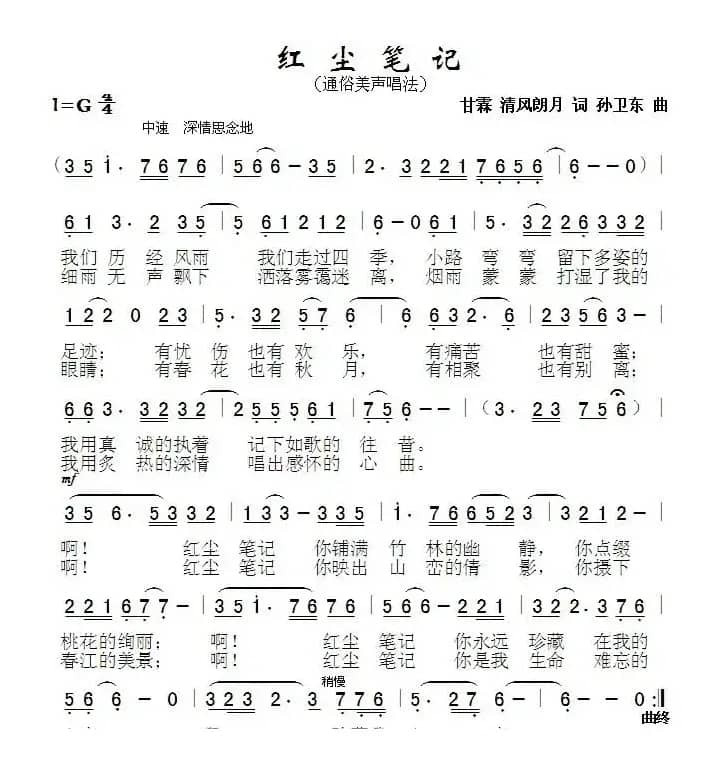 红尘笔记
（通俗美声唱法）
1=G 4/4
甘霖 清风朗月 词 孙卫东 曲
中速 深情思念地
（3 5 i· 7 6 7 6 | 5 6 6 – 3 5 | 2· 3 2 2 1 7 6 5 6 | 6 – – 0）|
6 1 3· 2 3 5 | 5 6 1 2 1 2 | 6 – 0 6 1 | 5· 3 2 2 6 3 3 2 |
我们 历 经 风雨 我们走过四 季， 小路 弯 弯 留下多姿的
细雨 无 声 飘下 洒落雾霭迷 离， 烟雨 蒙 蒙 打湿了我的
1 2 2 0 2 3 | 5· 3 2 5 7 6 6 – | 6 3 2· 6 | 2 3 5 6 3 – |
足迹； 有忧 伤 也有 欢 乐， 有痛苦 也有甜 蜜；
眼睛； 有春 花 也有 秋 月， 有相聚 也有别 离；
6 6 3· 3 2 3 2 | 2 5 5 5 6 1 | 7 5 6 – – |（3· 2 3 7 5 6）|
我用真 诚的执着 记下如歌的 往 昔。
我用炙 热的深情 唱出感怀的 心 曲。
mf
3 5 6· 5 3 3 2 | 1 3 3 – 3 3 5 | i· 7 6 6 5 2 3 | 3 2 1 2 – |
啊！ 红尘 笔记 你铺满 竹 林的幽 静， 你点缀
啊！ 红尘 笔记 你映出 山 峦的倩 影， 你摄下
2 2 1 6 7 7 – | 3 5 i· 7 6 7 6 | 5 6 6 – 2 2 1 | 3 2 2· 3 7 6 |
桃花的绚丽； 啊！ 红尘 笔记 你永远 珍藏 在我的
春江的美景； 啊！ 红尘 笔记 你是我 生命 难忘的
稍慢
5 6 6 – 0 | 3 2 3 2· 3 7 7 6 | 5· 2 7 6 – | 6 – – 0 :||
曲终